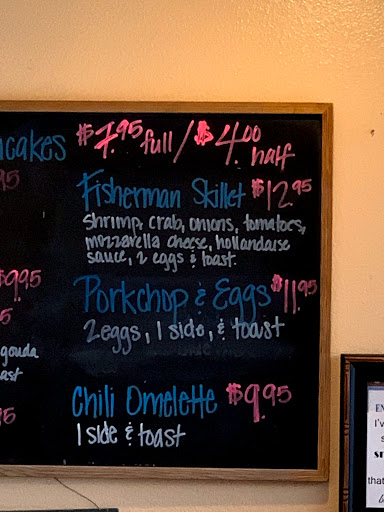 cakes $7.95 full / $4.00 half
95
Fisherman Skillet $12.95
Shrimp, crab, onions, tomatoes,
mozzarella cheese, hollandaise
sauce, 2 eggs & toast.
$9.95
Porkchop & Eggs $11.95
5
2 eggs, 1 side, & toast
gouda
ast
Chili Omelette $9.95
5
1 side & toast
I'v
s
that